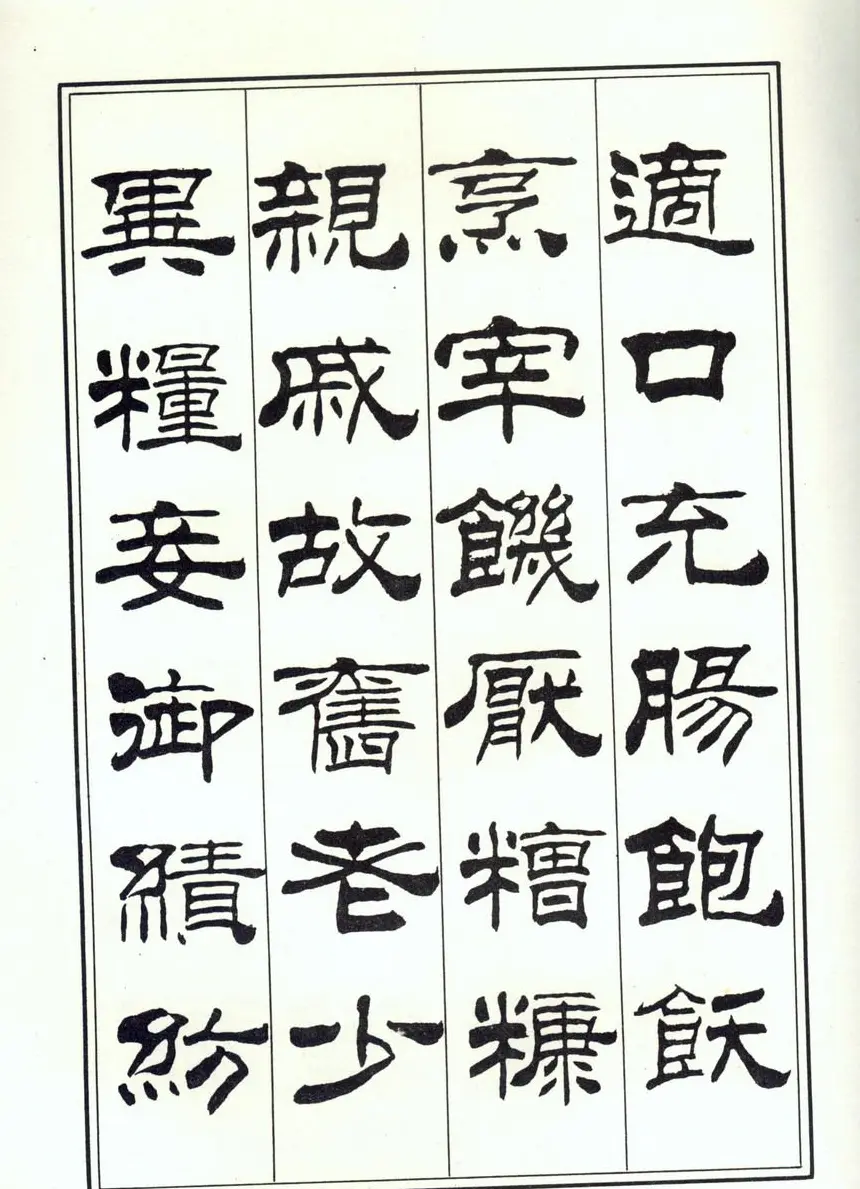 適口充腸飽飫
烹宰饑厭糟糠
親戚故舊老少
異糧妾御績紡